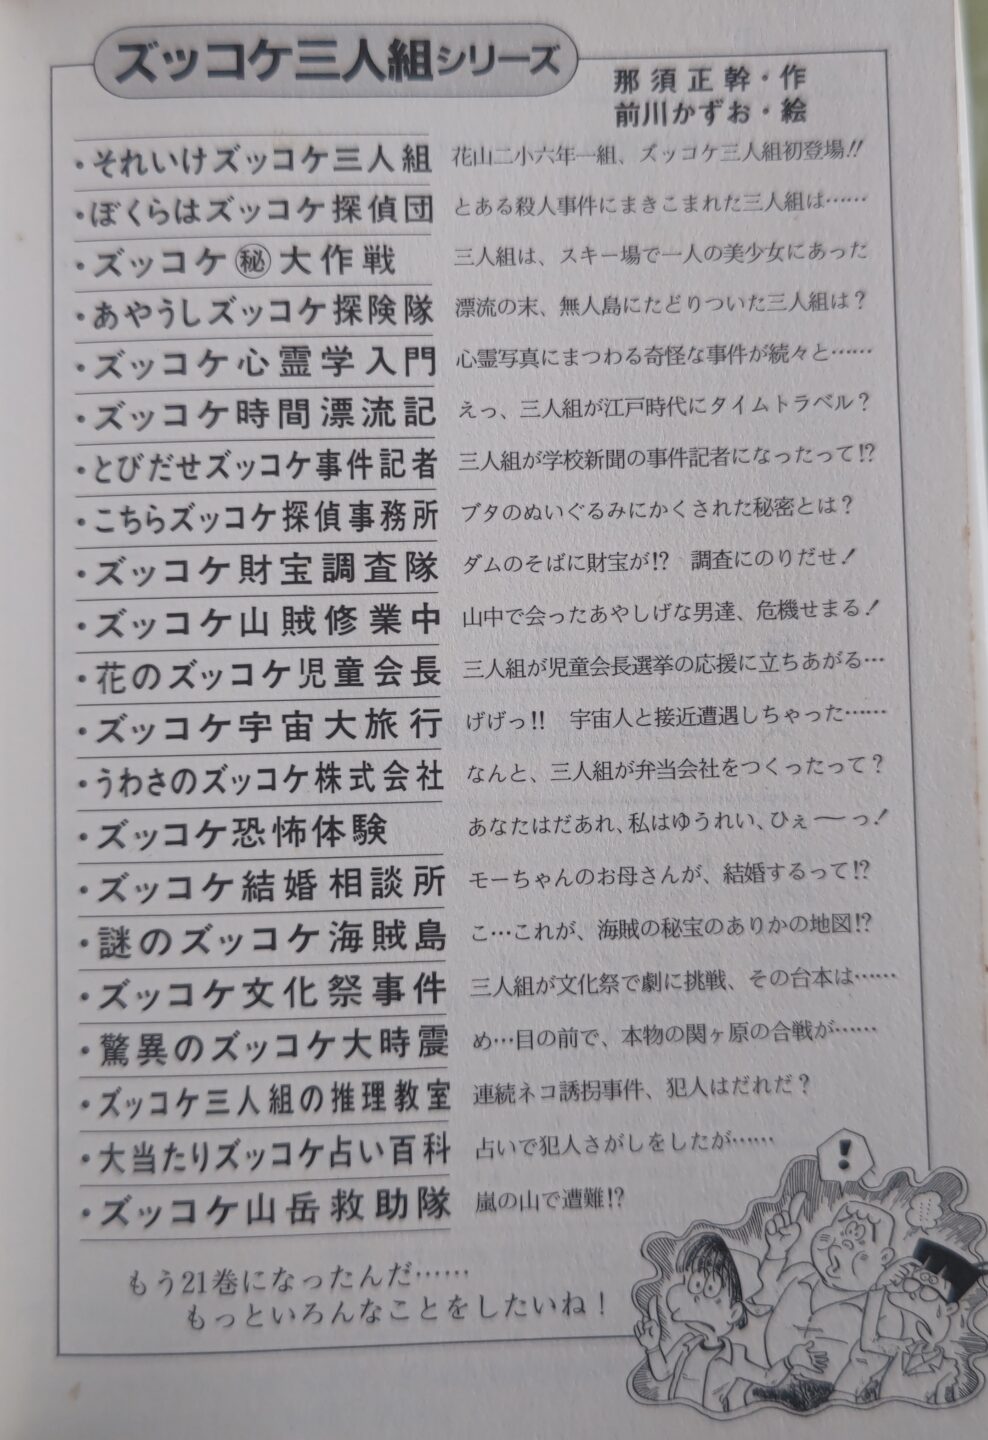 ズッコケ三人組シリーズ
那須正幹・作
前川かずお・絵
・それいけズッコケ三人組 花山二小六年一組、ズッコケ三人組初登場!!
・ぼくらはズッコケ探偵団 とある殺人事件にまきこまれた三人組は……
・ズッコケ㊙大作戦 三人組は、スキー場で一人の美少女にあった
・あやうしズッコケ探険隊 漂流の末、無人島にたどりついた三人組は？
・ズッコケ心霊学入門 心霊写真にまつわる奇怪な事件が続々と……
・ズッコケ時間漂流記 えっ、三人組が江戸時代にタイムトラベル？
・とびだせズッコケ事件記者 三人組が学校新聞の事件記者になったって!?
・こちらズッコケ探偵事務所 ブタのぬいぐるみにかくされた秘密とは？
・ズッコケ財宝調査隊 ダムのそばに財宝が!? 調査にのりだせ！
・ズッコケ山賊修業中 山中で会ったあやしげな男達、危機せまる！
・花のズッコケ児童会長 三人組が児童会長選挙の応援に立ちあがる…
・ズッコケ宇宙大旅行 げげっ!! 宇宙人と接近遭遇しちゃった……
・うわさのズッコケ株式会社 なんと、三人組が弁当会社をつくったって？
・ズッコケ恐怖体験 あなたはだあれ、私はゆうれい、ひぇ〜っ！
・ズッコケ結婚相談所 モーちゃんのお母さんが、結婚するって!?
・謎のズッコケ海賊島 こ…これが、海賊の秘宝のありかの地図!?
・ズッコケ文化祭事件 三人組が文化祭で劇に挑戦、その台本は……
・驚異のズッコケ大時震 め…目の前で、本物の関ヶ原の合戦が……
・ズッコケ三人組の推理教室 連続ネコ誘拐事件、犯人はだれだ？
・大当たりズッコケ占い百科 占いで犯人さがしをしたが……
・ズッコケ山岳救助隊 嵐の山で遭難!?
もう21巻になったんだ……
もっといろんなことをしたいね！
！